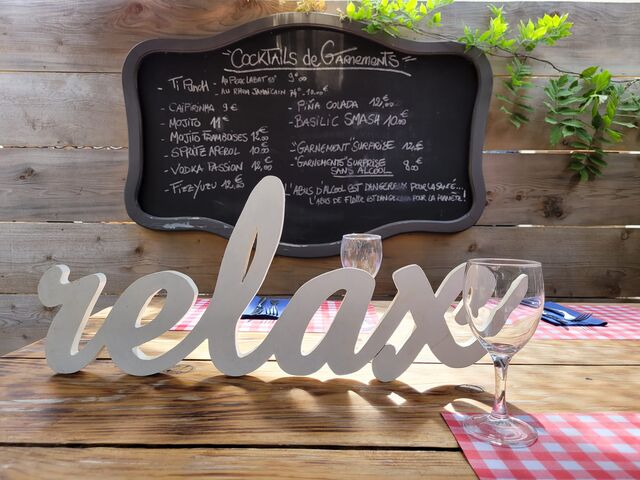 "COCKTAILS de GARNEMENTS"
- TI PUNCH - AU PORK LABAT 59° 9.00
- AU RHUM JAMAICAIN
- CAÏPIRINHA 9€
- MOJITO 11€
- MOJITO FRAMBOISES 12.00€
- SPRITZ APEROL 10.00€
- VODKA PASSION 12.00€
- FIZZYUZU
- PIÑA COLADA 12.00€
- BASILIC SMASH 10.00€
- "GARNEMENT" SURPRISE 12.€
- "GARNEMENTS" SURPRISE 8.00€
SANS ALCOOL
L'ABUS D'ALCOOL EST DANGEREUX POUR LA SANTÉ...
L'ABUS DE FLOTTE EST DANGEREUX POUR LA PLANÈTE!
relax